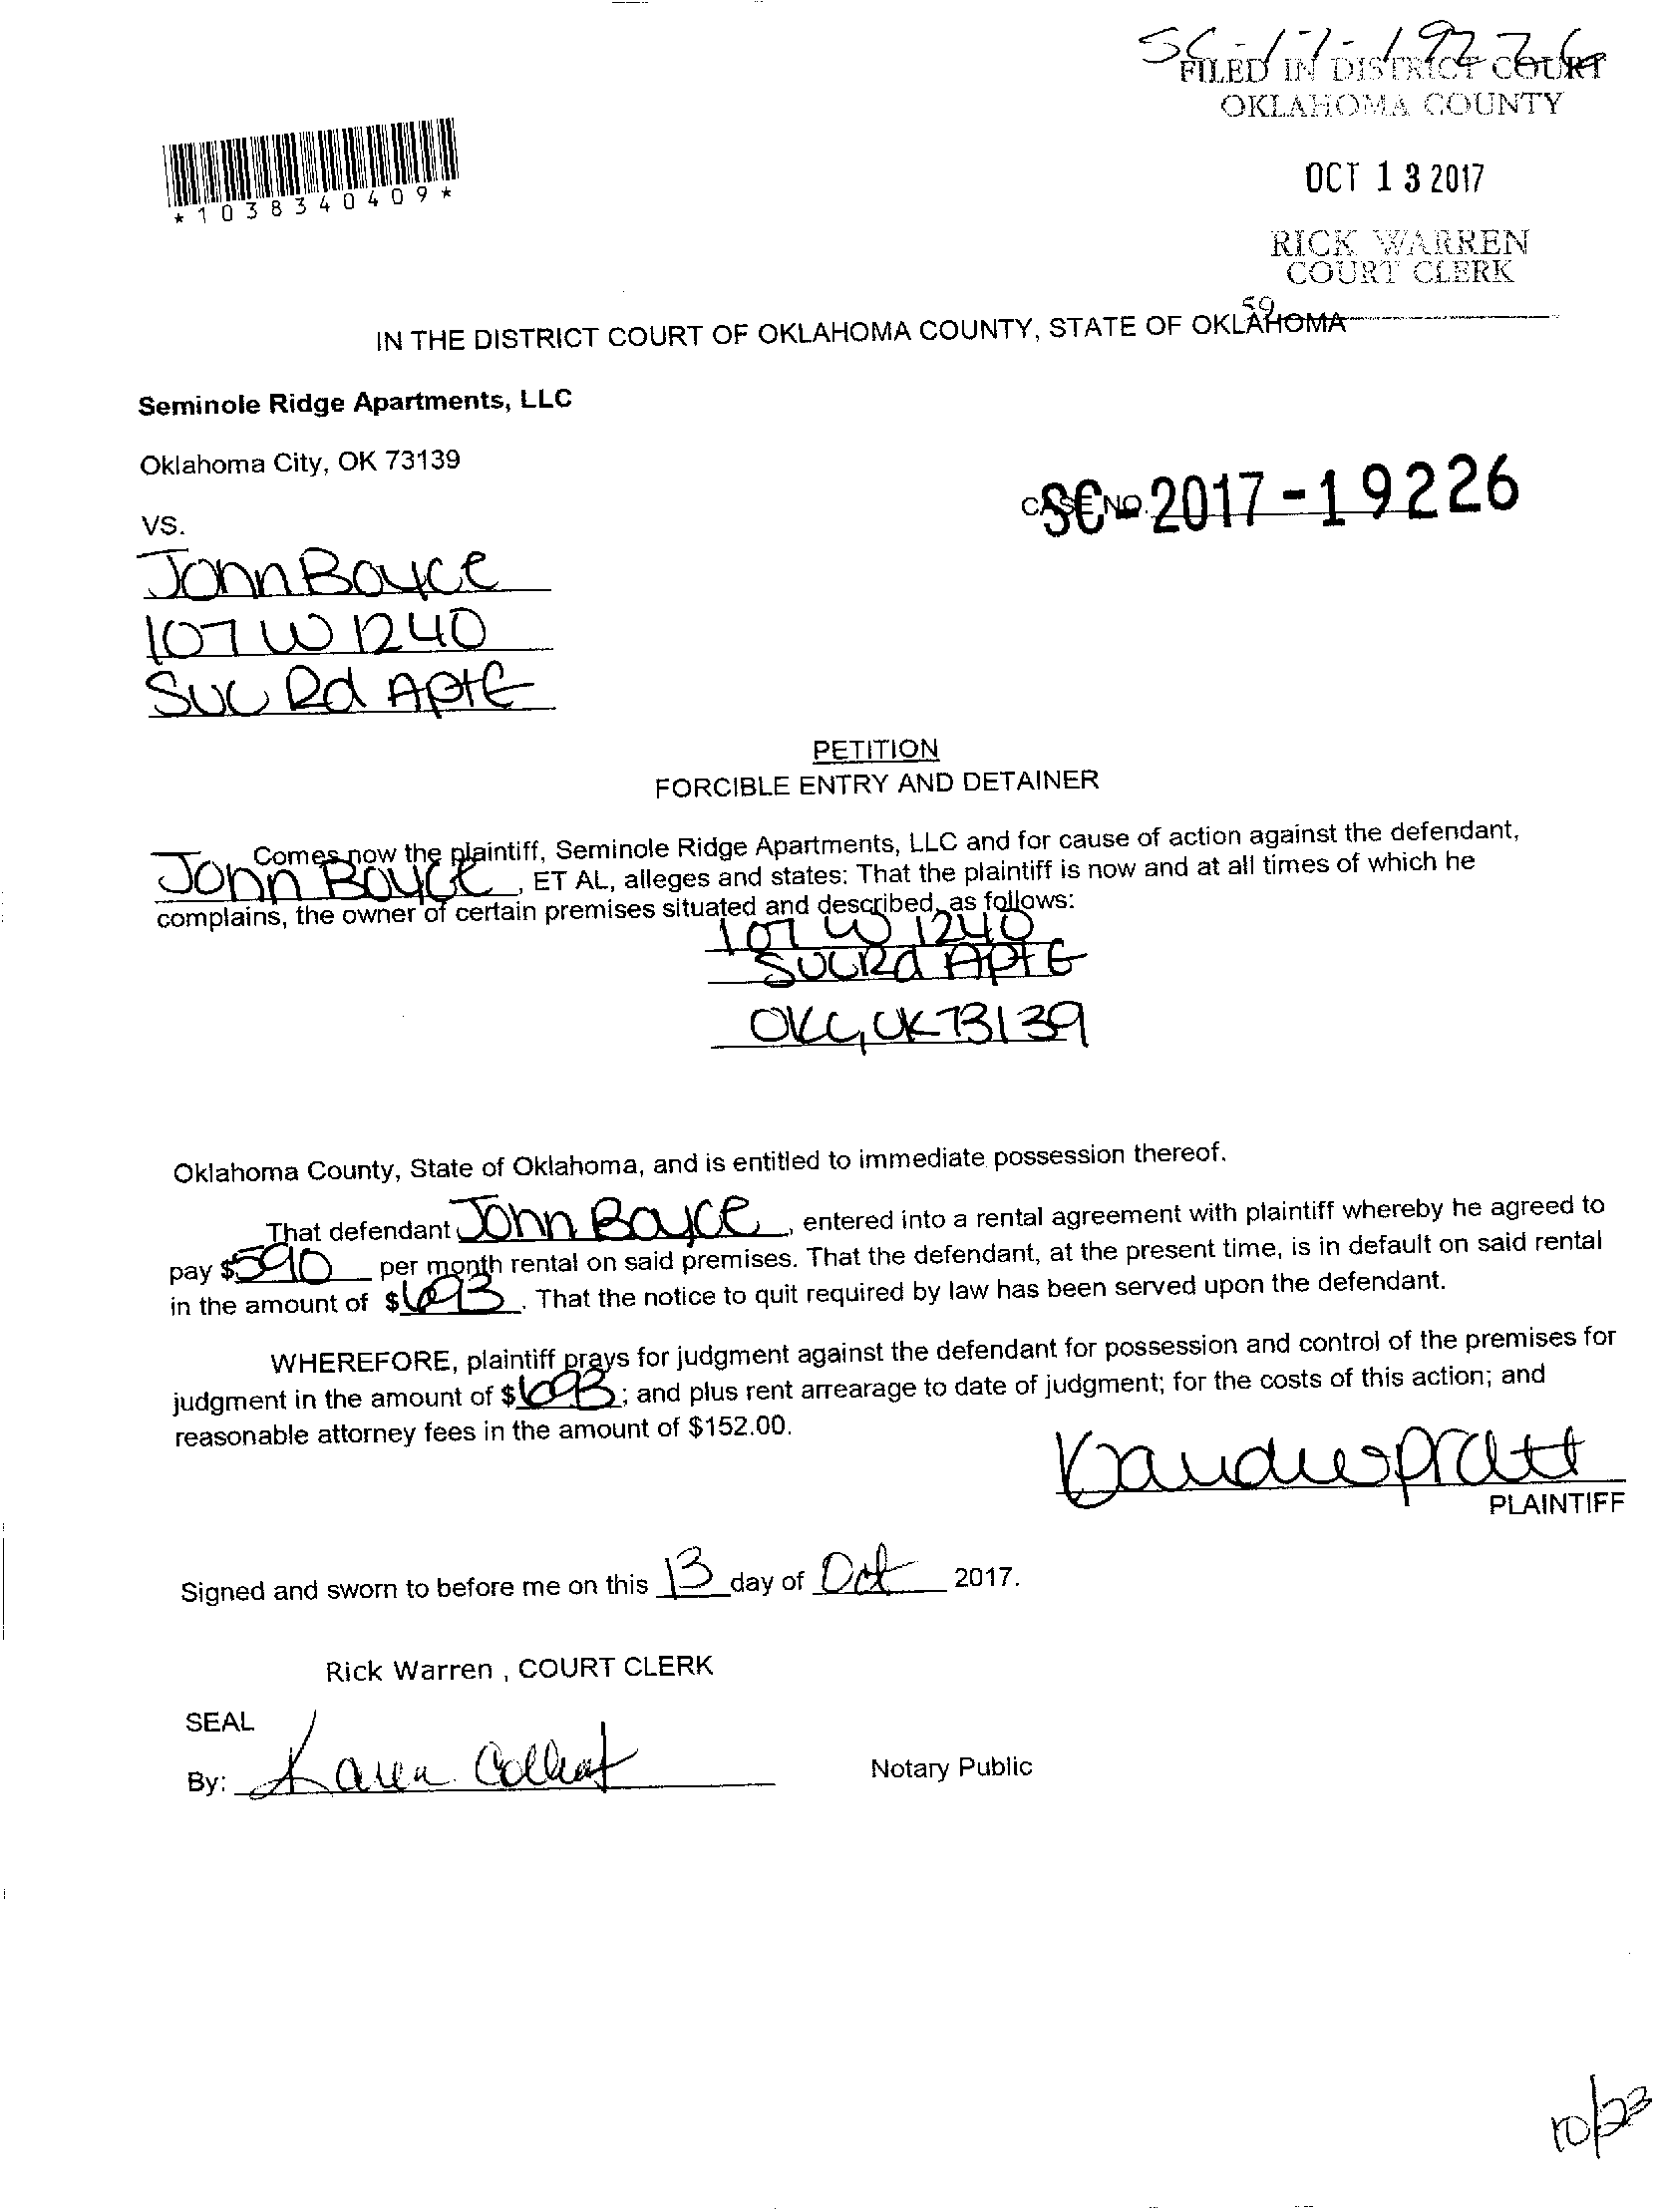 SC-17-19226
FILED IN DISTRICT COURT
OKLAHOMA COUNTY
OCT 13 2017
RICK WARREN
COURT CLERK
59
*1038340409*
IN THE DISTRICT COURT OF OKLAHOMA COUNTY, STATE OF OKLAHOMA
Seminole Ridge Apartments, LLC
Oklahoma City, OK 73139
CASE NO. SC-2017-19226
VS.
John Boyce
107 W 1240
SW Rd Apt G
PETITION
FORCIBLE ENTRY AND DETAINER
Comes now the plaintiff, Seminole Ridge Apartments, LLC and for cause of action against the defendant,
John Boyce, ET AL, alleges and states: That the plaintiff is now and at all times of which he
complains, the owner of certain premises situated and described, as follows:
107 W 1240
Rd Apt G
OKC, OK 73139
Oklahoma County, State of Oklahoma, and is entitled to immediate possession thereof.
That defendant John Boyce, entered into a rental agreement with plaintiff whereby he agreed to
pay $590 per month rental on said premises. That the defendant, at the present time, is in default on said rental
in the amount of $693. That the notice to quit required by law has been served upon the defendant.
WHEREFORE, plaintiff prays for judgment against the defendant for possession and control of the premises for
judgment in the amount of $693; and plus rent arrearage to date of judgment; for the costs of this action; and
reasonable attorney fees in the amount of $152.00.
Pratt
PLAINTIFF
Signed and sworn to before me on this 13 day of Oct 2017.
Rick Warren , COURT CLERK
SEAL
By: Karen
Notary Public
10/23